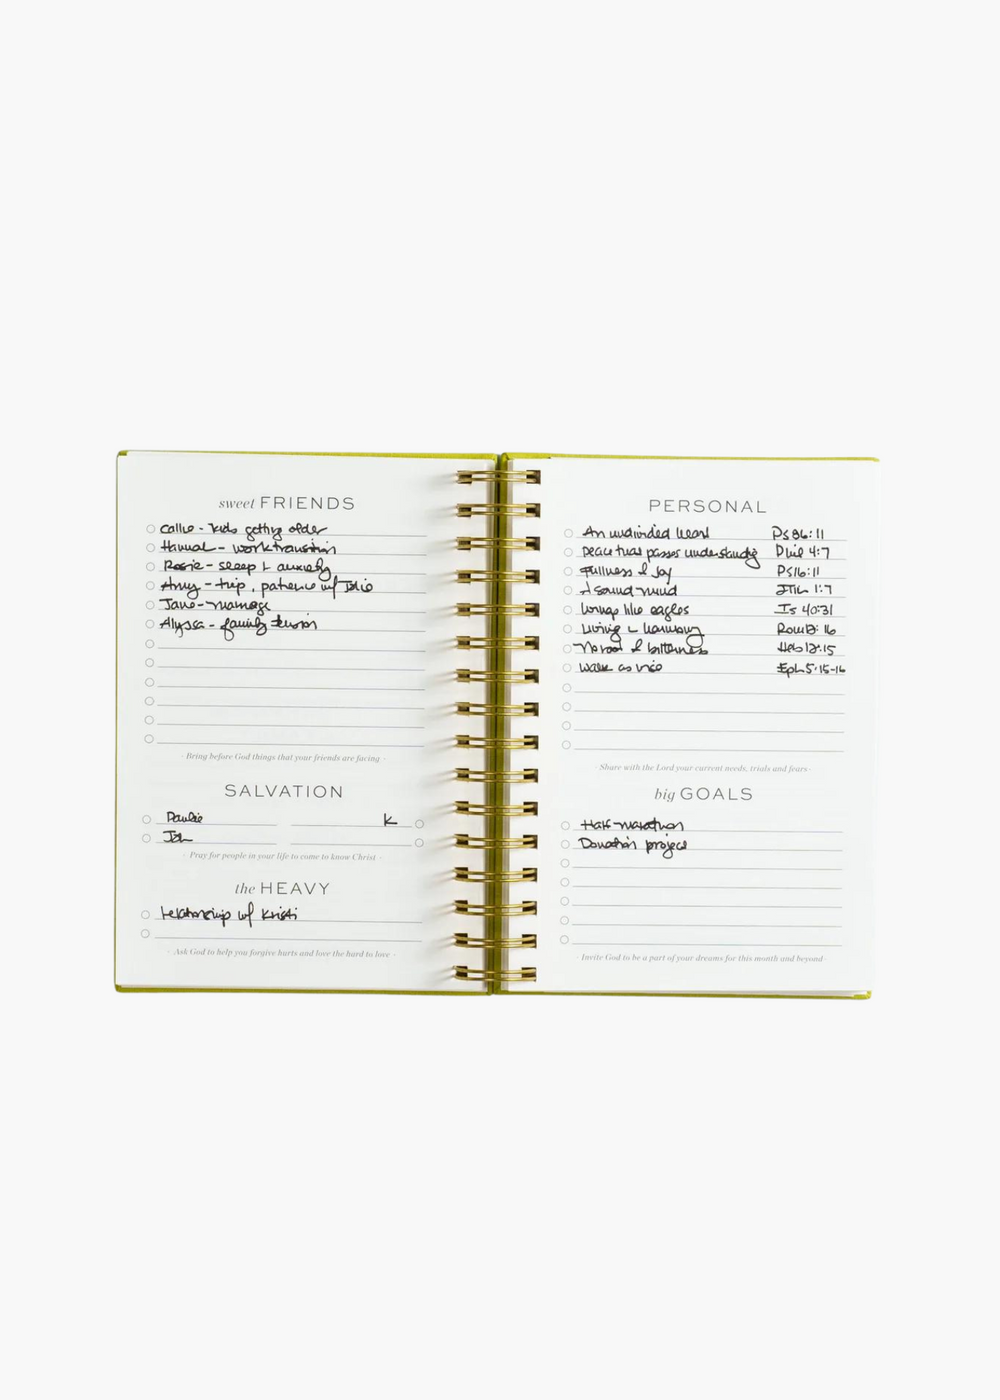 sweet FRIENDS
Callie - kids getting older
Hannah - work transition
Rosie - sleep + anxiety
Amy - trip, patience w/
Jane - marriage
Alyssa - family tension
- Bring before God things that your friends are facing -
SALVATION
Paulie K
- Pray for people in your life to come to know Christ -
the HEAVY
relationship w/ Kristi
- Ask God to help you forgive hurts and love the hard to love -
PERSONAL
An undivided heart Ps 86:11
peace that passes understanding Phil 4:7
Fullness of joy Ps 16:11
A sound mind 2Tim 1:7
wings like eagles Is 40:31
Living in harmony Rom 12:16
No root of bitterness Heb 12:15
walk as wise Eph 5:15-16
- Share with the Lord your current needs, trials and fears -
big GOALS
Half-marathon
Donation project
- Invite God to be a part of your dreams for this month and beyond -